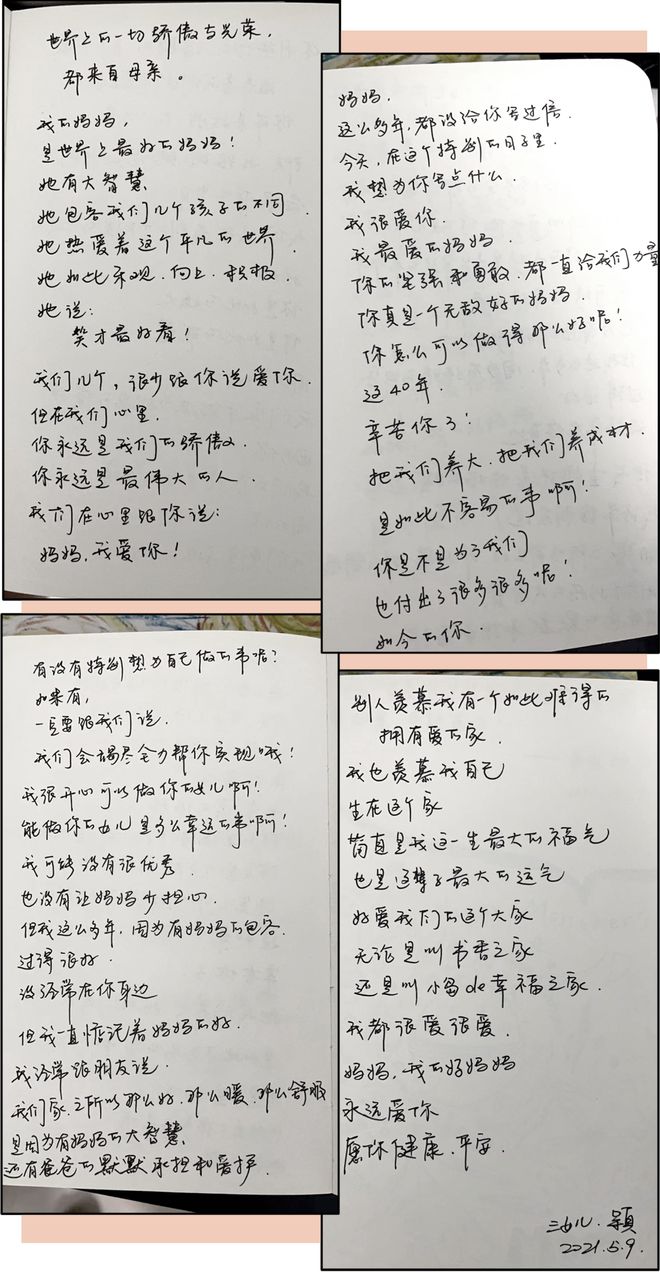 世界上的一切骄傲与光荣，
都来自母亲。
我的妈妈，
是世界上最好的妈妈！
她有大智慧，
她包容我们几个孩子的不同，
她热爱着这个平凡的世界，
她如此乐观、向上、积极，
她说：
笑才最好看！
我们几个，很少跟你说爱你，
但在我们心里，
你永远是我们的骄傲，
你永远是最伟大的人，
我们在心里跟你说：
妈妈，我爱你！
妈妈，
这么多年，都没给你写过信，
今天，在这个特别的日子里，
我想为你写点什么，
我很爱你，
我最爱的妈妈，
你的坚强和勇敢，都一直给我们力量
你真是一个无敌好的妈妈，
你怎么可以做得那么好呢！
这40年，
辛苦你了！
把我们养大，把我们养成材，
是如此不容易的事啊！
你是不是为了我们
也付出了很多很多呢！
如今的你，
有没有特别想为自己做的事呢？
如果有，
一定要跟我们说，
我们会竭尽全力帮你实现哦！
我很开心可以做你的女儿啊！
能做你的女儿是多么幸运的事啊！
我可能没有很优秀，
也没有让妈妈少担心，
但我这么多年，因为有妈妈的包容，
过得很好，
没经常在你身边
但我一直惦记着妈妈的好，
我经常跟朋友说，
我们家之所以那么好，那么暖，那么舒服
是因为有妈妈的大智慧，
还有爸爸的默默承担和爱护，
别人羡慕我有一个如此难得的
拥有爱的家，
我也羡慕我自己
生在这个家
简直是我这一生最大的福气
也是这辈子最大的运气
好爱我们的这个大家
无论是叫书香之家
还是叫小窝de幸福之家，
我都很爱很爱，
妈妈，我的好妈妈
永远爱你
愿你健康、平安，
三女儿、颖
2021.5.9.